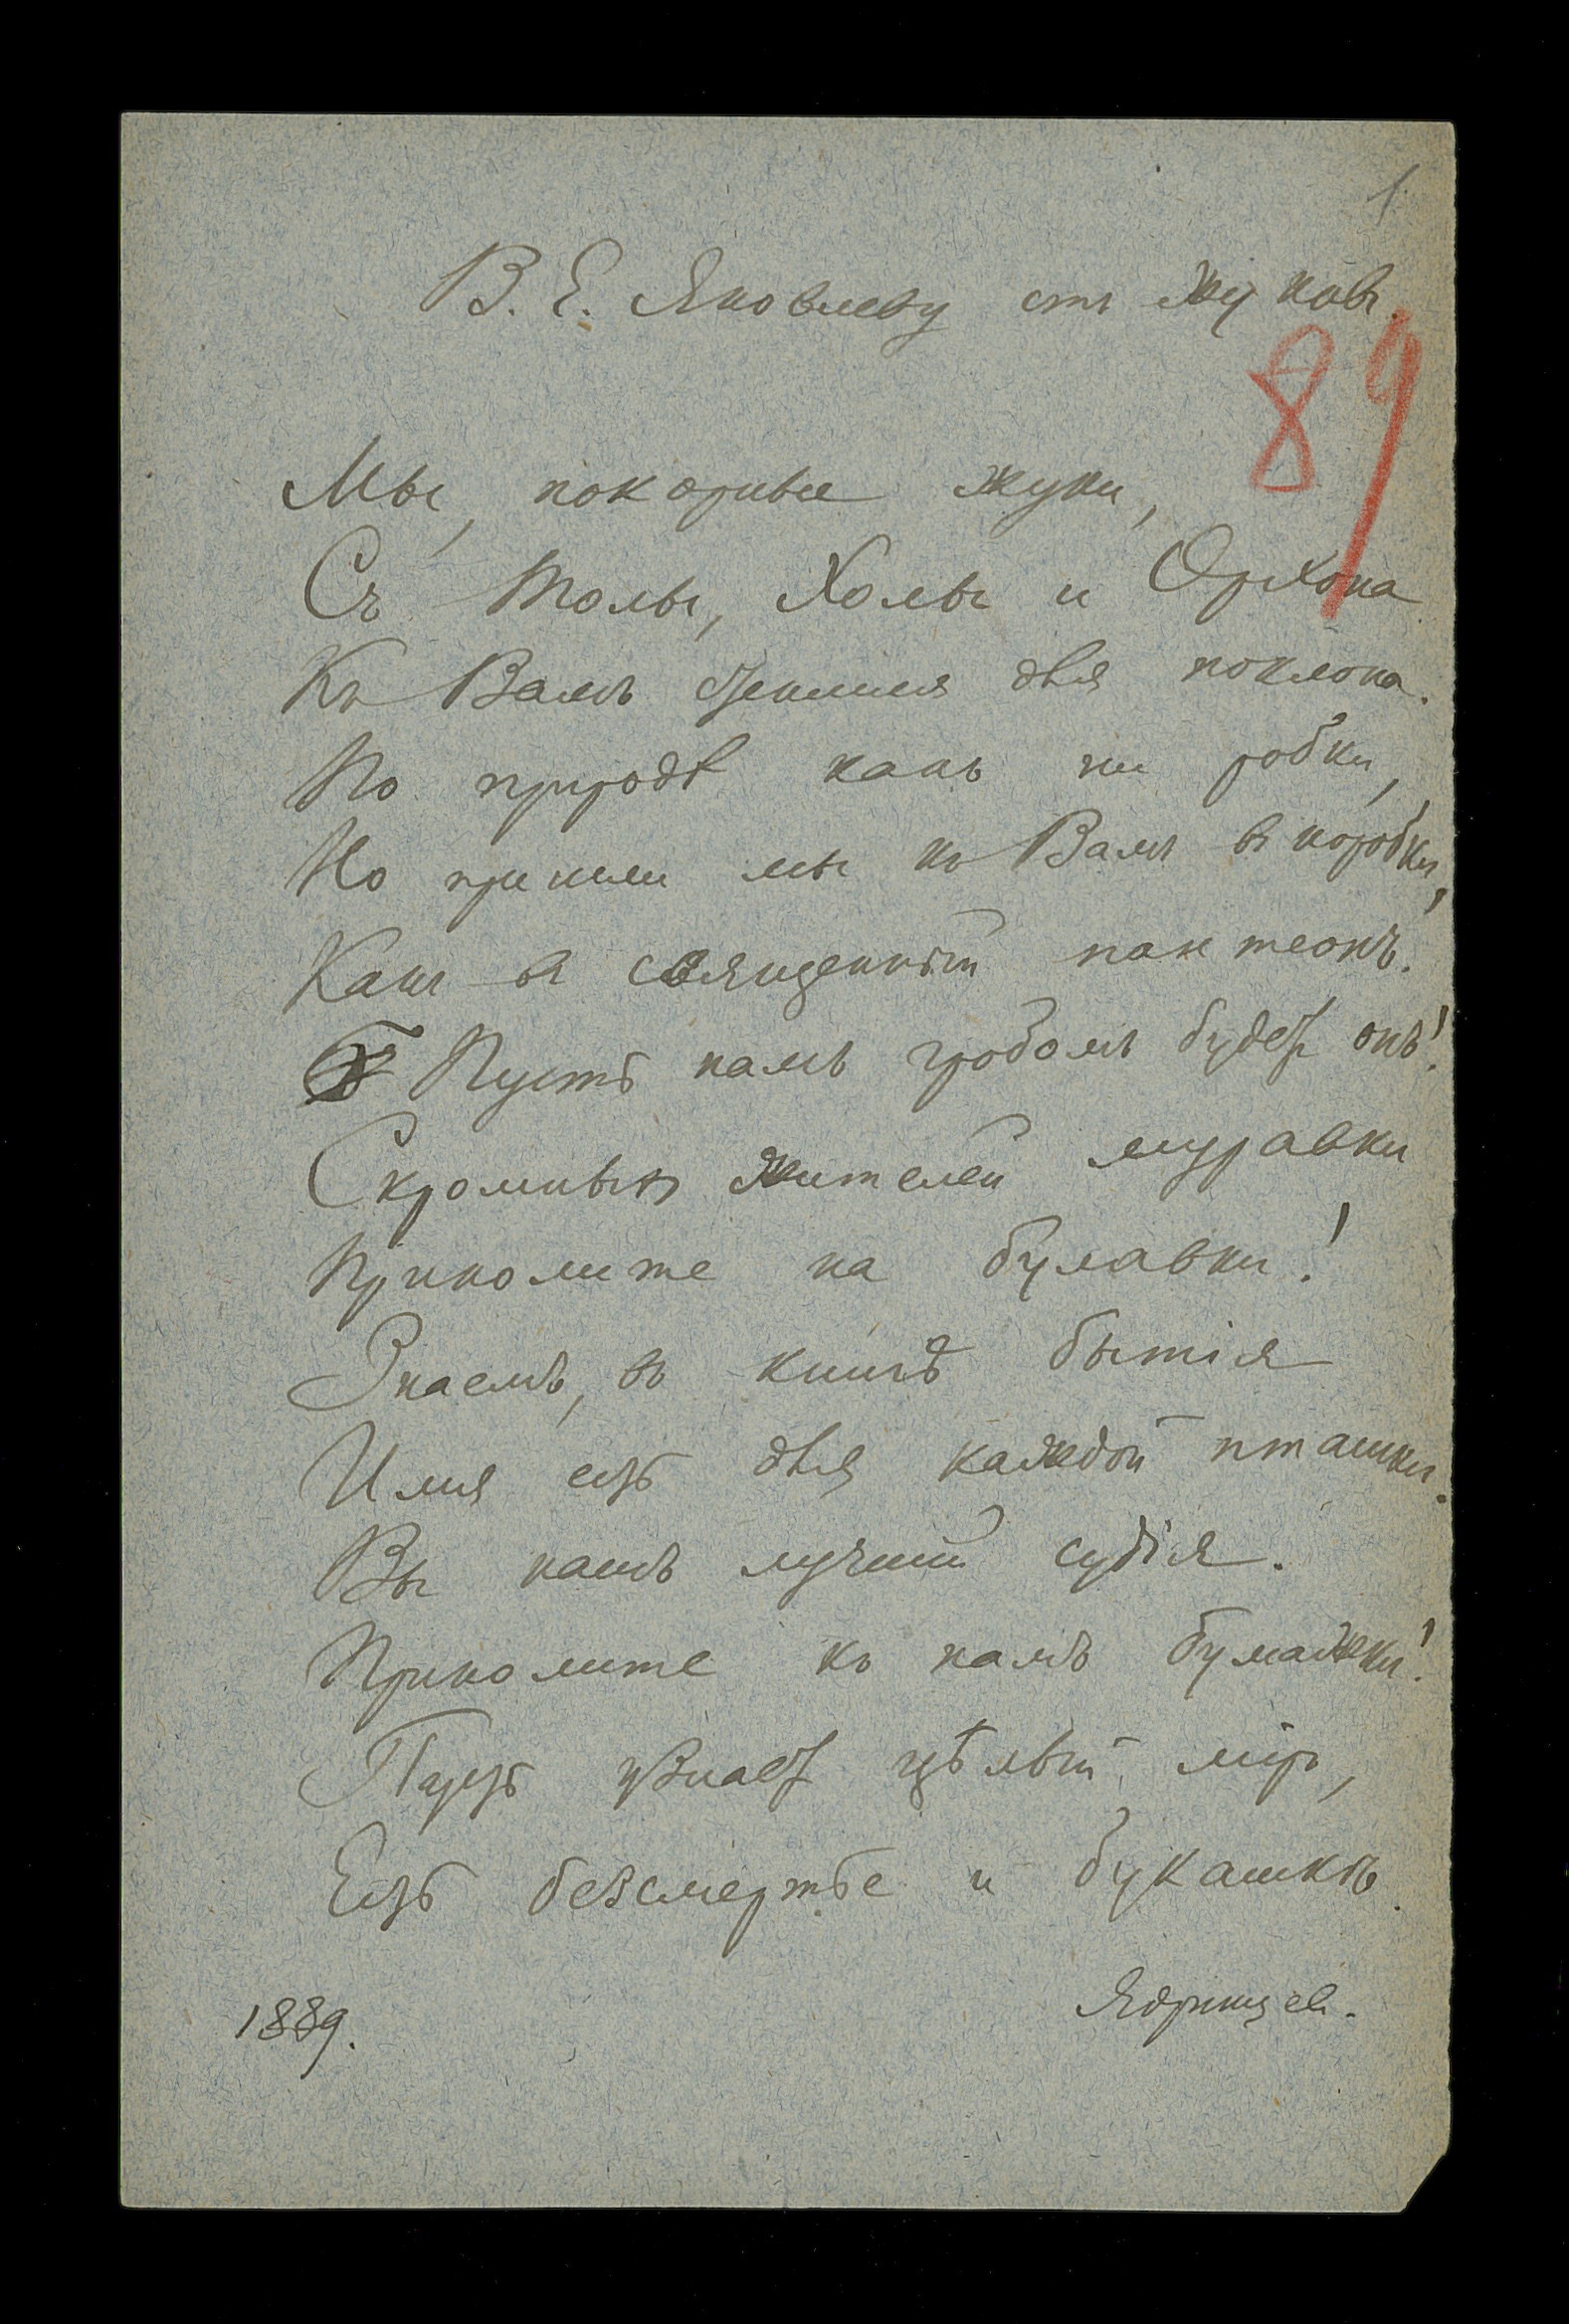 1
В. Е. Яковлеву отъ жуковъ.
89
Мы, покорные жуки,
Съ Толы, Холы и Орхона
Къ Вамъ явились для поклона.
По природѣ какъ ни робки,
Но пришли мы къ Вамъ въ коробки,
Какъ въ священный пантеонъ.
Пусть намъ гробомъ будетъ онъ!
Скромныхъ жителей муравки
Приколите на булавки!
Знаемъ, въ книгѣ бытія
Имя есть для каждой пташки.
Вы нашъ лучшій судія.
Приколите къ намъ бумажки!
Пусть узнаетъ цѣлый міръ,
Есть безсмертье и букашкѣ.
1889.
Ядринцевъ.